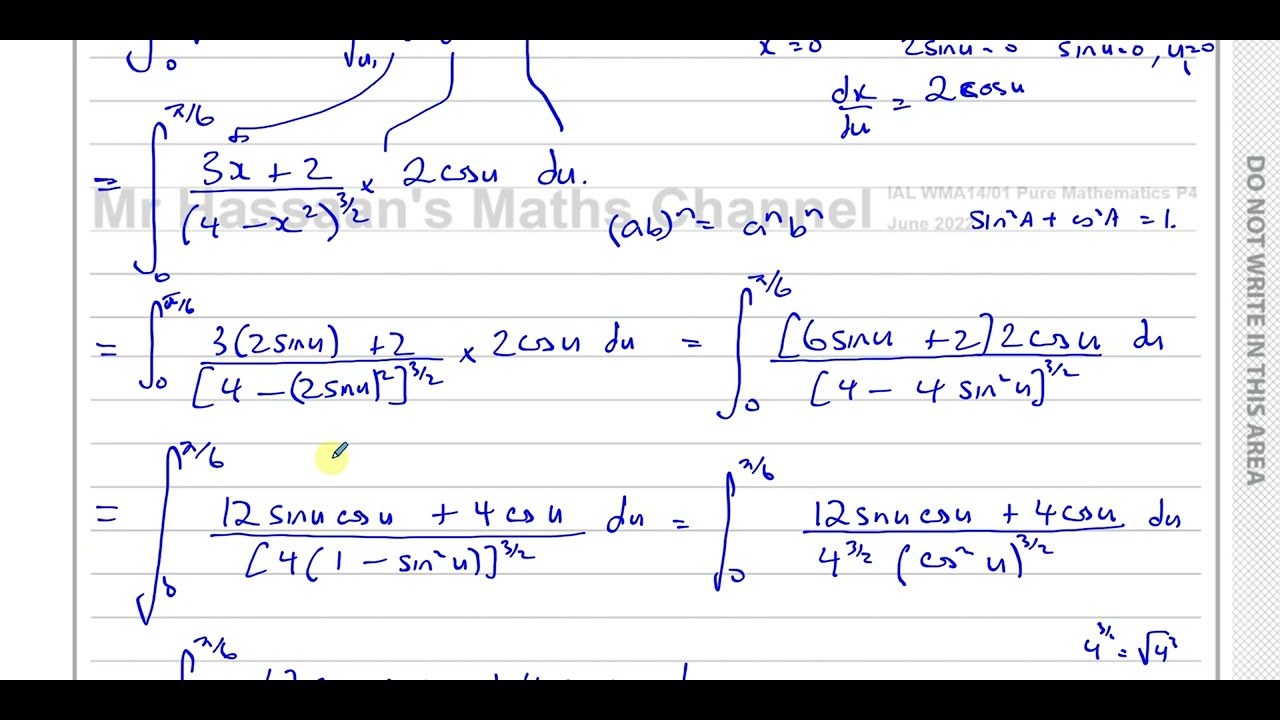 x = 0 2sinu = 0 sinu=0, u=0
∫₀
dx/du = 2cosu
= ∫₀^(π/6) (3x + 2)/(4 − x²)^(3/2) × 2cosu du.
Mr Hassaan's Maths Channel
IAL WMA14/01 Pure Mathematics P4
June 2022
(ab)ⁿ = aⁿbⁿ sin²A + cos²A = 1.
= ∫₀^(π/6) (3(2sinu) + 2)/[4 − (2sinu)²]^(3/2) × 2cosu du = ∫₀^(π/6) ([6sinu + 2]2cosu)/[4 − 4sin²u]^(3/2) du
= ∫₀^(π/6) (12sinucosu + 4cosu)/[4(1 − sin²u)]^(3/2) du = ∫₀^(π/6) (12sinucosu + 4cosu)/(4^(3/2) (cos²u)^(3/2)) du
4^(3/2) = √4³
π/6
DO NOT WRITE IN THIS AREA